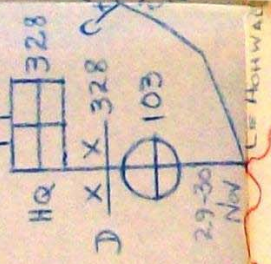 328
HQ
X X 328
D
103
29-30
Nov
LE HOHWALD